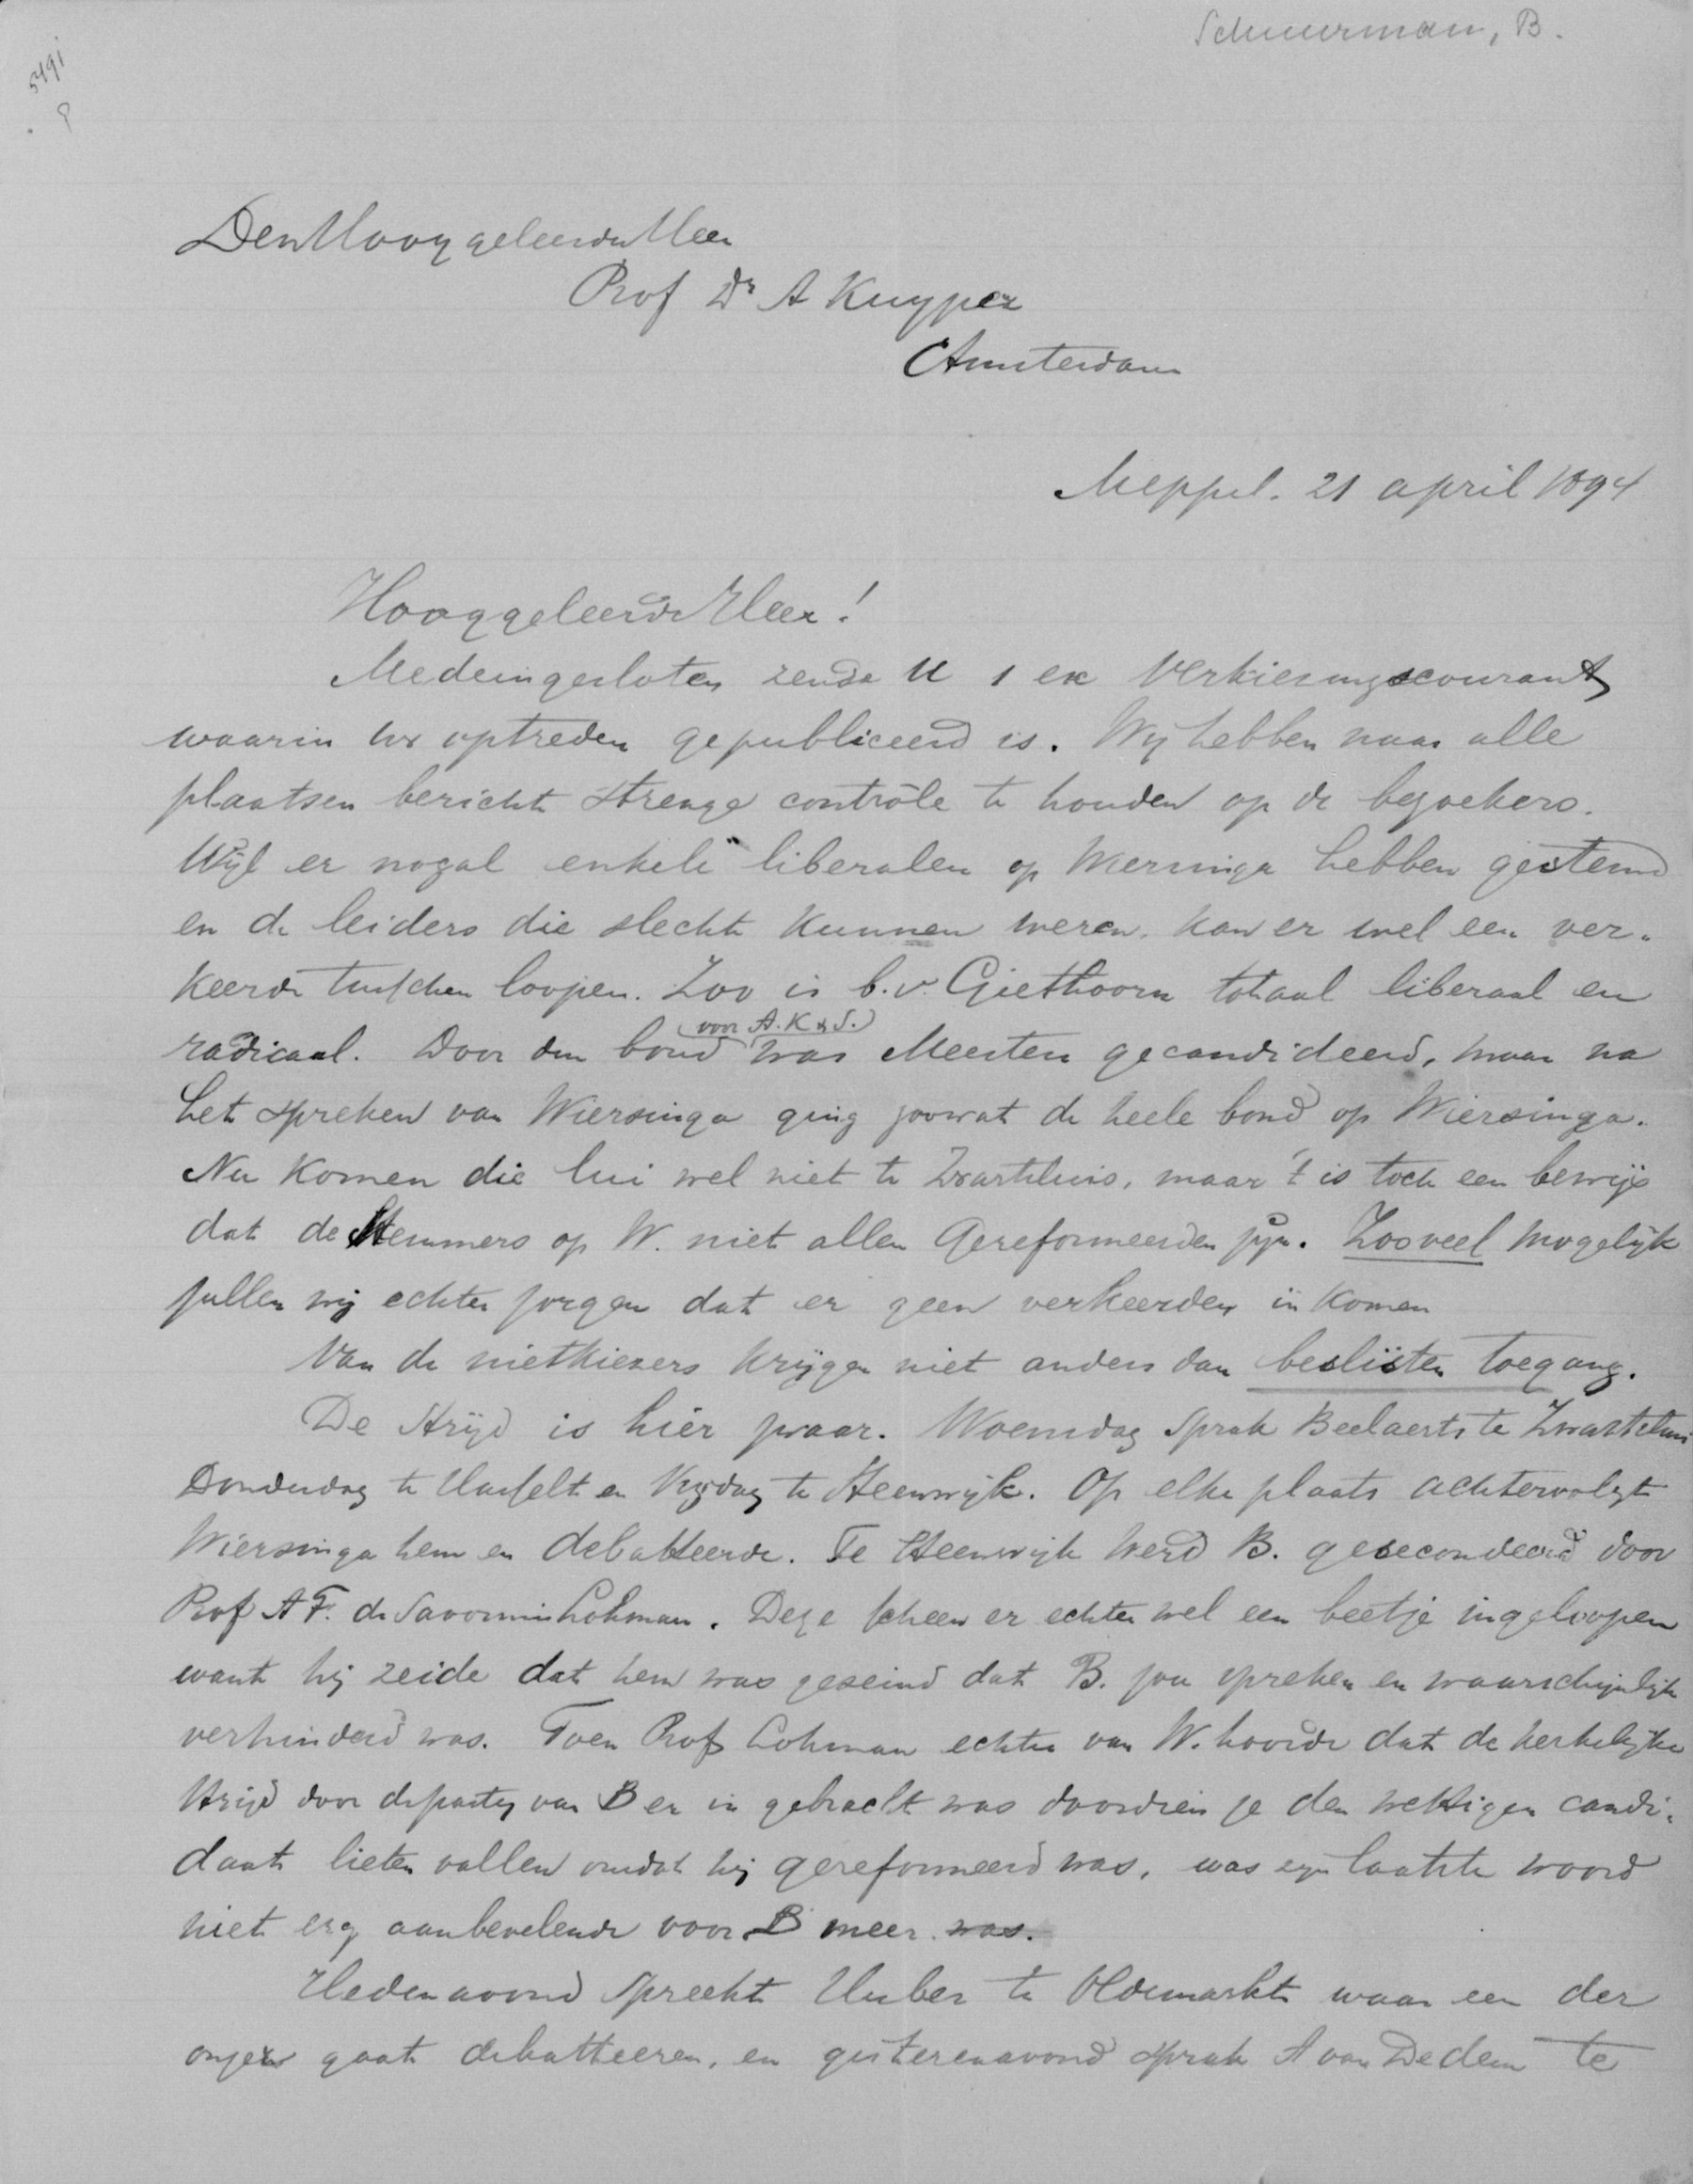 Schuurman, B.
5491
Den Hooggeleerden Heer
Prof Dr A Kuyper
Amsterdam
Meppel. 21 april 1894
Hooggeleerde Heer!
Medeingesloten zende U 1 ex Verkiezingscourant
waarin uw optreden gepubliceerd is. Wij hebben naar alle
plaatsen bericht strenge contrôle te houden op de bezoekers.
Wijl er nogal enkele liberalen op Wiersinga hebben gestemd
en de leiders die slecht kunnen weren, kan er wel een ver-
keerde tusschen loopen. Zoo is b.v. Giethoorn totaal liberaal en
(voor A. K & S.)
radicaal. Door den bond was Meesters gecandideerd, maar na
het spreken van Wiersinga ging zoowat de heele bond op Wiersinga.
Nu komen die lui wel niet te Zwartsluis, maar 't is toch een bewijs
dat de stemmers op W. niet allen Gereformeerden zijn. Zooveel mogelijk
zullen wij echter zorgen dat er geen verkeerden in komen
Van de nietkiezers krijgen niet anders dan beslisten toegang.
De strijd is hier zwaar. Woensdag sprak Beelaerts te Zwartsluis
Donderdag te Hasselt en Vrijdag te Steenwijk. Op elke plaats achtervolgt
Wiersinga hem en debatteerde. Te Steenwijk werd B. gesecondeerd door
Prof A F. de Savornin Lohman. Deze scheen er echter wel een beetje ingeloopen
want hij zeide dat hem was geseind dat B. zou spreken en waarschijnlijk
verhinderd was. Toen Prof Lohman echter van W. hoorde dat de kerkelijke
strijd door de partij van B er in gebracht was doordien ze den wettigen candi-
daat lieten vallen omdat hij gereformeerd was, was zijn laatste woord
niet erg aanbevelende voor B meer was.
Hedenavond spreekt Huber te Oldemarkt waar een der
onzen gaat debatteeren, en gisterenavond sprak A van Dedem te